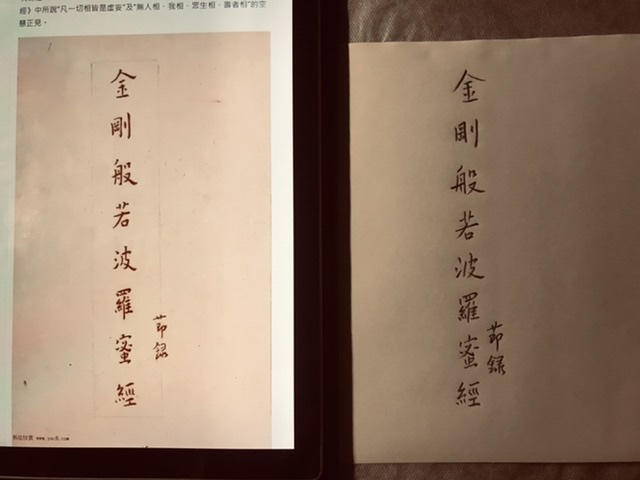 經》中所說"凡一切相皆是虛妄"及"無人相、我相、眾生相、壽者相"的空
慧正見。
金剛般若波羅蜜經
節錄
金剛般若波羅蜜經
節錄